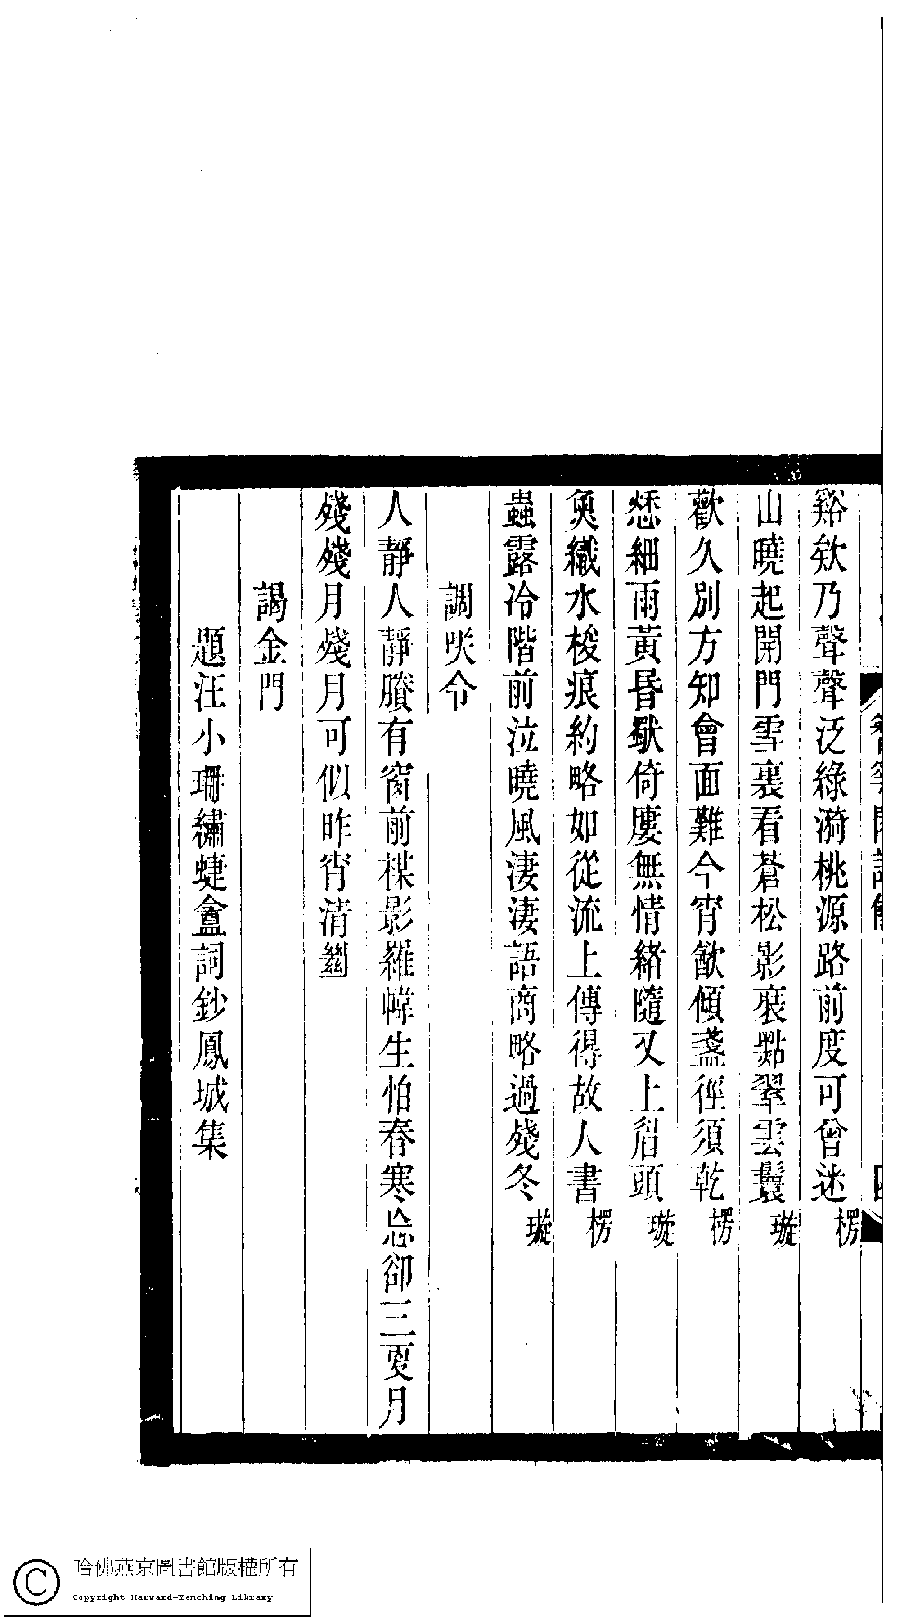 谿欸乃聲聲泛綠漪桃源路前度可曾迷 楞
山曉起開門雪裏看蒼松影裏點翠雲鬟 璇
歡久別方知會面難今宵飲傾盞徑須乾 楞
愁細雨黃昏獨倚廔無情緒隨又上眉頭 璇
奠織水梭痕約略如從流上傳得故人書 楞
蟲露冷階前泣曉風淒淒語商略過殘冬 璇
調咲令
人靜人靜賸有窗前楳影羅幃生怕春寒忘卻三更月
殘殘月殘月可似昨宵清
謁金門
題汪小珊繡蜨盦詞鈔鳳城集
哈佛燕京圖書館版權所有
Copyright Harvard-Yenching Library